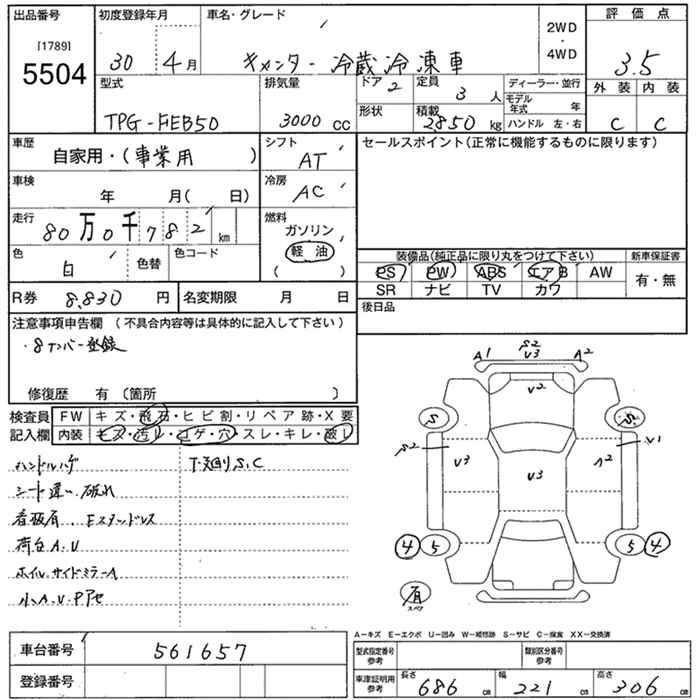 出品番号 初度登録年月 車名・グレード 評価点
[1789]
5504
30 4月 キャンター 冷蔵冷凍車 2WD・4WD 3.5
型式 排気量 ドア 2 定員 3人 ディーラー・並行 外装 内装
TPG-FEB50 3000cc 形状 積載 2850kg モデル年式 年 C C
ハンドル 左・右
車歴 シフト セールスポイント(正常に機能するものに限ります)
自家用・(事業用) AT
車検 冷房
年 月( 日) AC
走行 燃料
80万0千782km ガソリン
色 色替 色コード 軽油
白 ( )
装備品(純正品に限り丸をつけて下さい) 新車保証書
PS PW ABS エアB AW 有・無
SR ナビ TV カワ
R券 8,830円 名変期限 月 日 後日品
注意事項申告欄 (不具合内容等は具体的に記入して下さい)
・8ナンバー登録
修復歴 有 〔箇所 〕
検査員 FW キズ・飛石・ヒビ割・リペア跡・X要
記入欄 内装 キズ・汚レ・コゲ・穴・スレ・キレ・破レ
ハンドルハゲ 下廻りS,C
シート違い、破れ
看板有、Eスタッドレス
荷台A.U
ホイル、サイドミラーA
小A.U.P
A1 S2 V3 A2
V2
S S
S2 V3 V3 A2 V1
4 5 5 4
有
スペア
A－キズ E－エクボ U－凹み W－補修跡 S－サビ C－腐食 XX－交換済
車台番号 561657 型式指定番号 参考 類別区分番号 参考
登録番号 車庫証明用 参考 長さ 686cm 幅 221cm 高さ 306cm